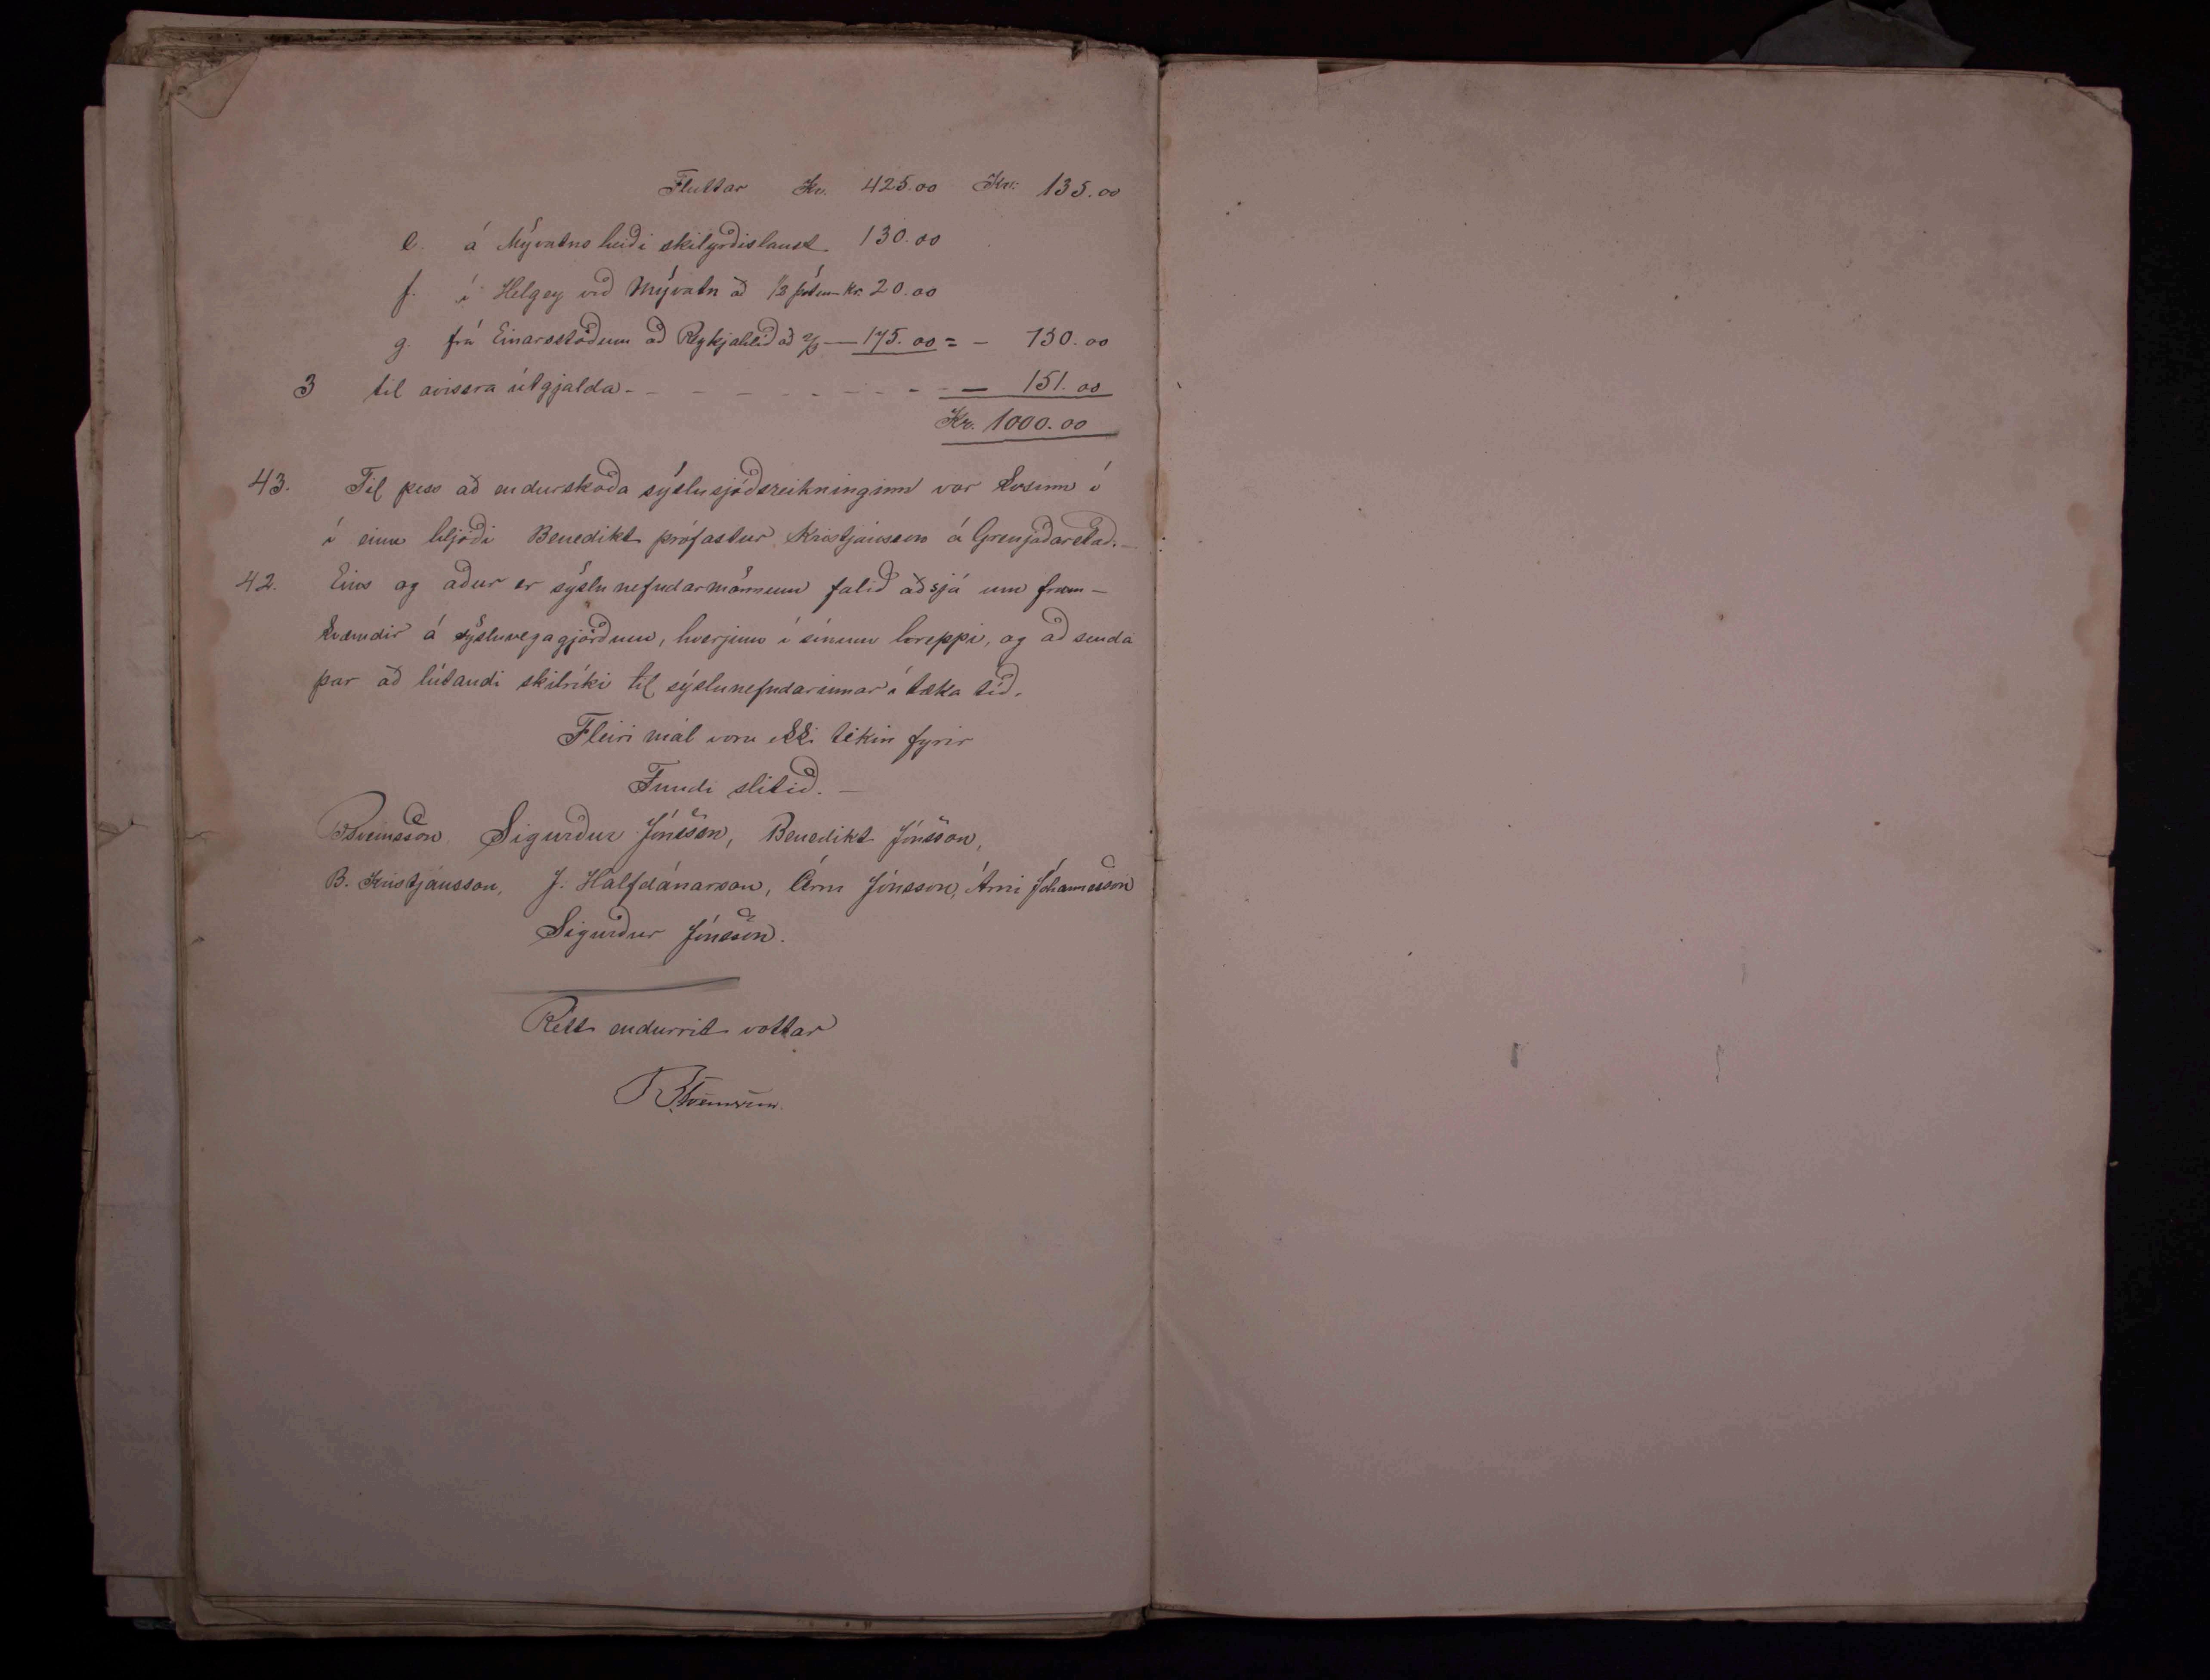 Fluttar Kr. 425.00 Kr: 135.00
e. á Mývatnsheiði skilyrðislaust 130.00
f. í Helgey við Mývatn að 1/2 Kr. 20.00
g. frá Einarsstöðum að Reykjahlíð að 2/3 — 175.00 = - 730.00
3 til óvissra útgjalda - - - - - - - - — 151.00
Kr. 1000.00
43. Til þess að endurskoða sýslusjóðsreikninginn var kosinn í
í einu hljóði Benedikt prófastur Kristjánsson á Grenjaðarstað. —
42. Eins og aður er sýslunefndarmönnum falið að sjá um fram-
kvæmdir á sýsluvegagjörðum, hverjum í sínum hreppi, og að senda
þar að lútandi skilríki til sýslunefndarinnar í tæka tíð.
Fleiri mál voru ekki tekin fyrir
Fundi slitið. —
BSveinsson, Sigurður Jónsson, Benedikt Jónsson,
B. Kristjánsson, J. Hálfdánarson, Árni Jónsson, Árni Jóhannesson
Sigurður Jónsson.
Rétt endurrit vottar
BSveinsson.